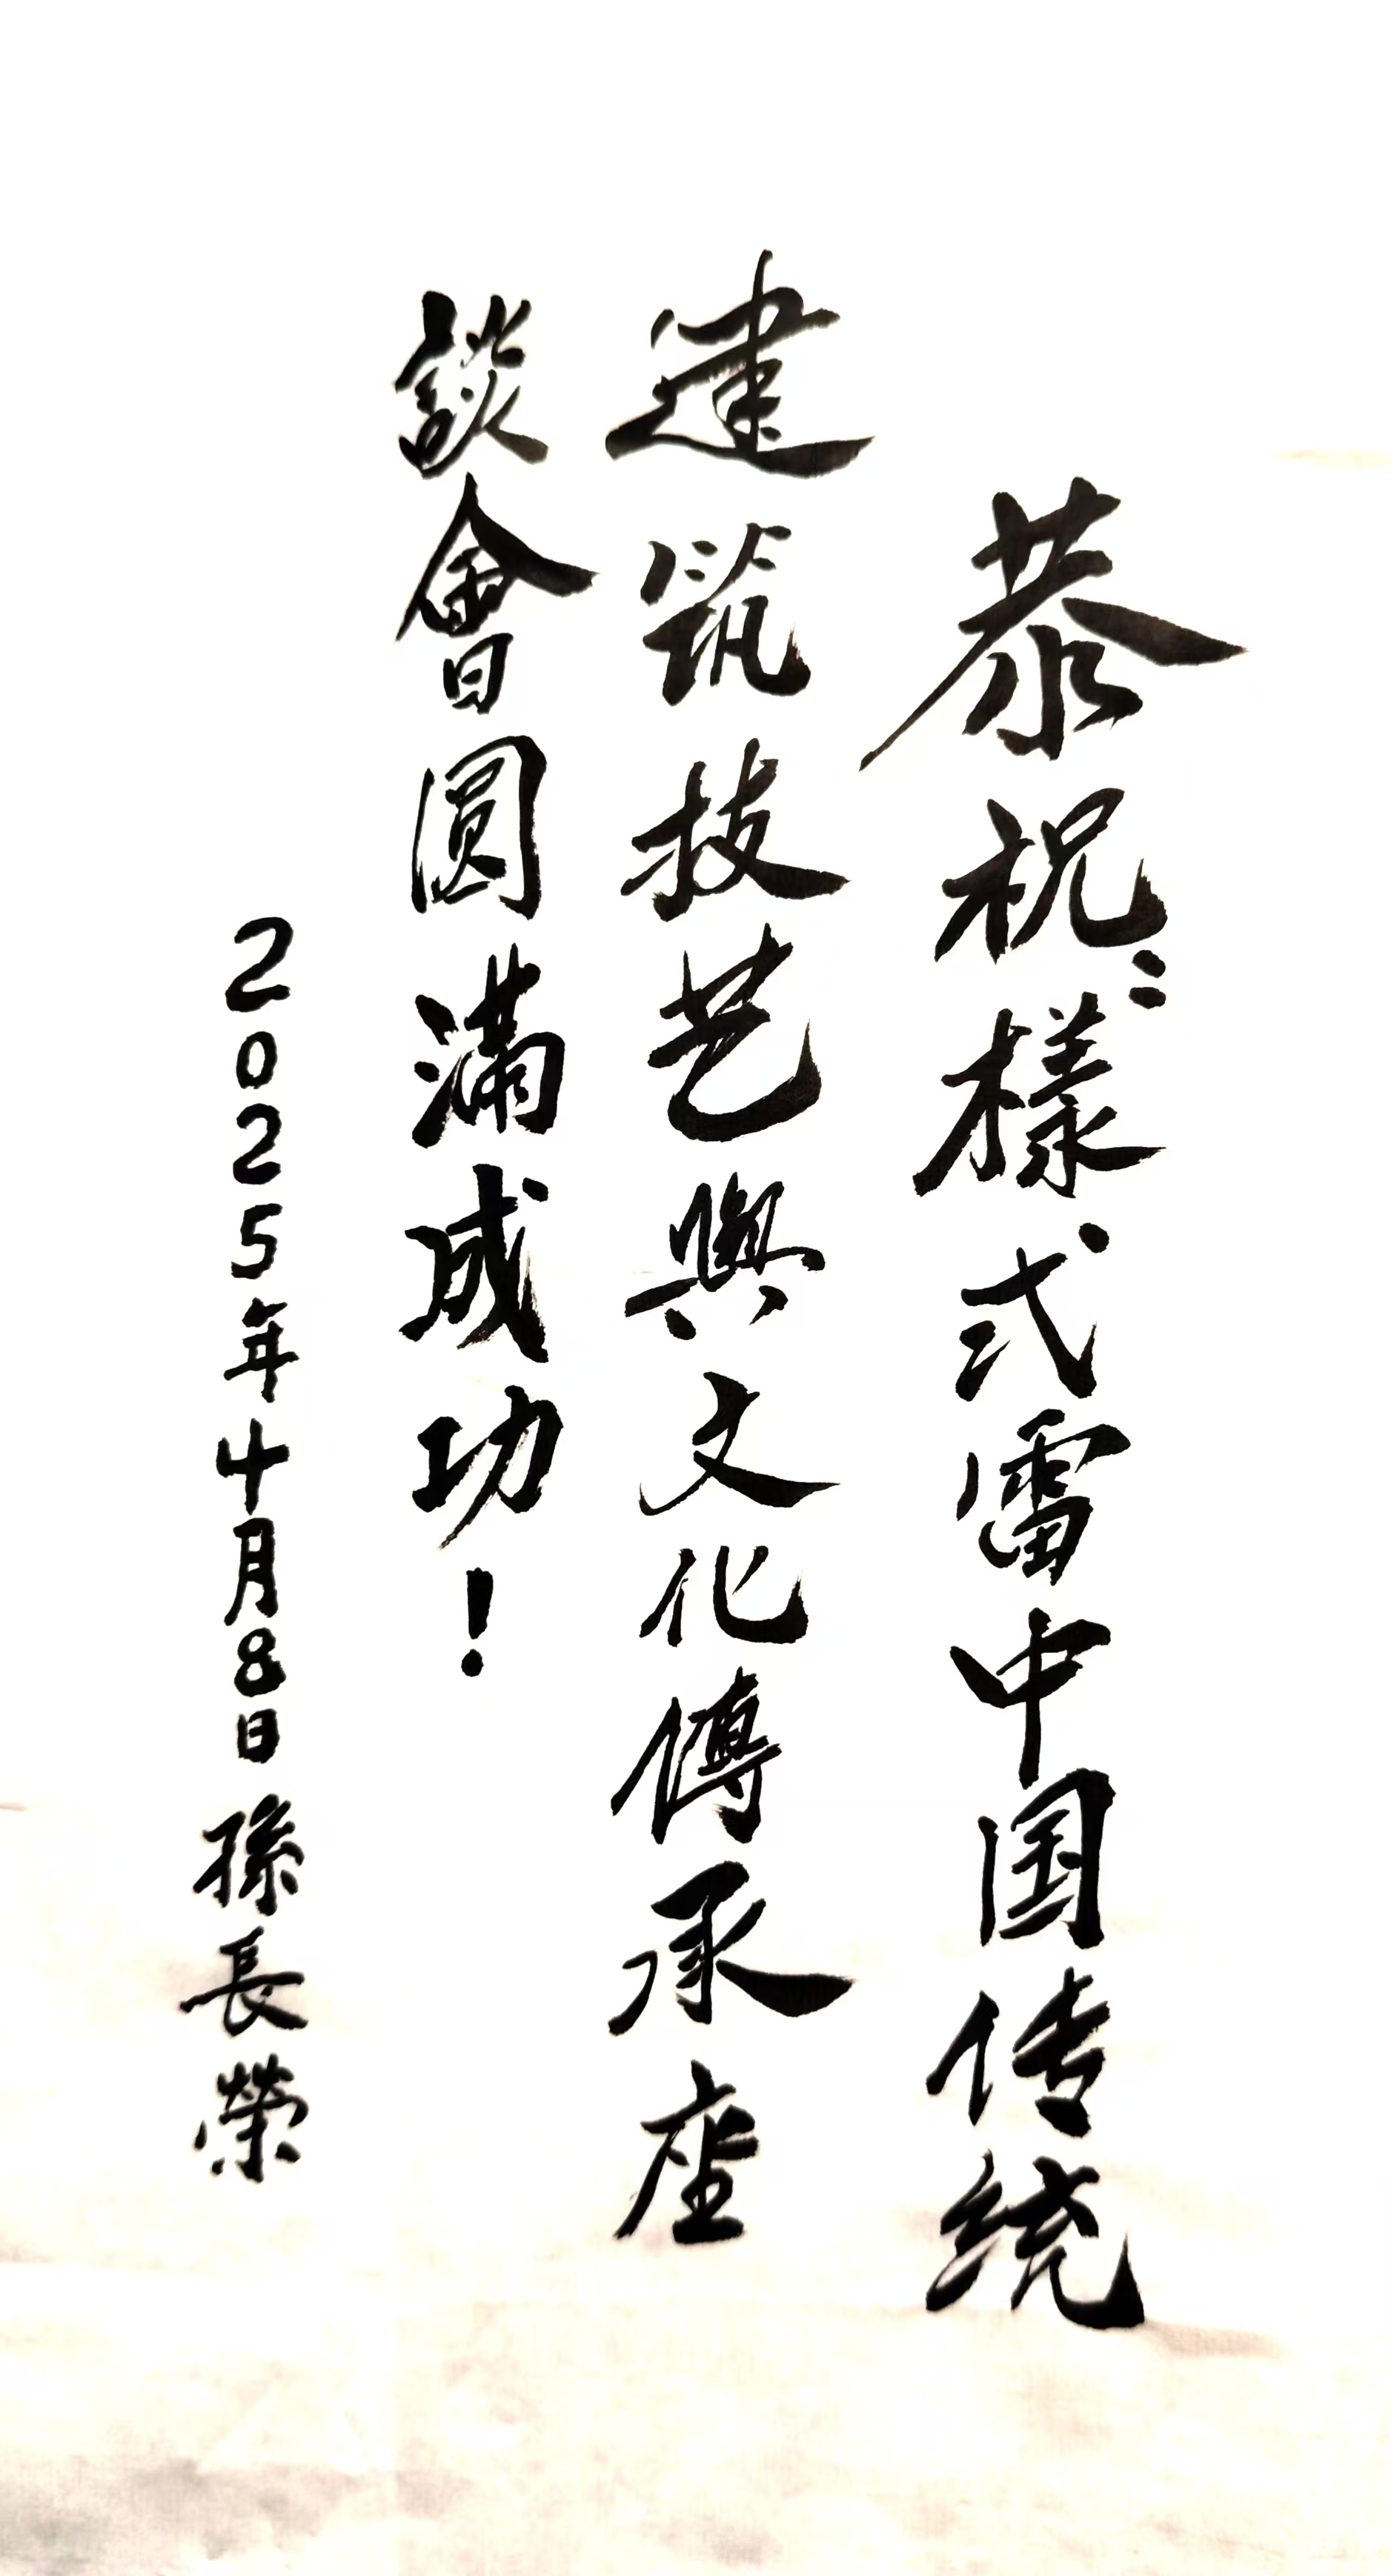 恭祝：樣式雷中国传统
建筑技艺與文化傳承座
談會圓滿成功！
2025年十月8日孫長榮